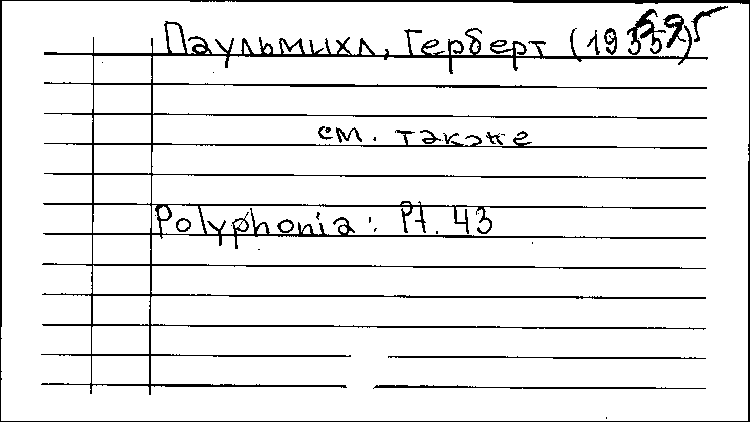 Паульмихл, Герберт (1935)
см. также
Polyphonia: Pt. 43